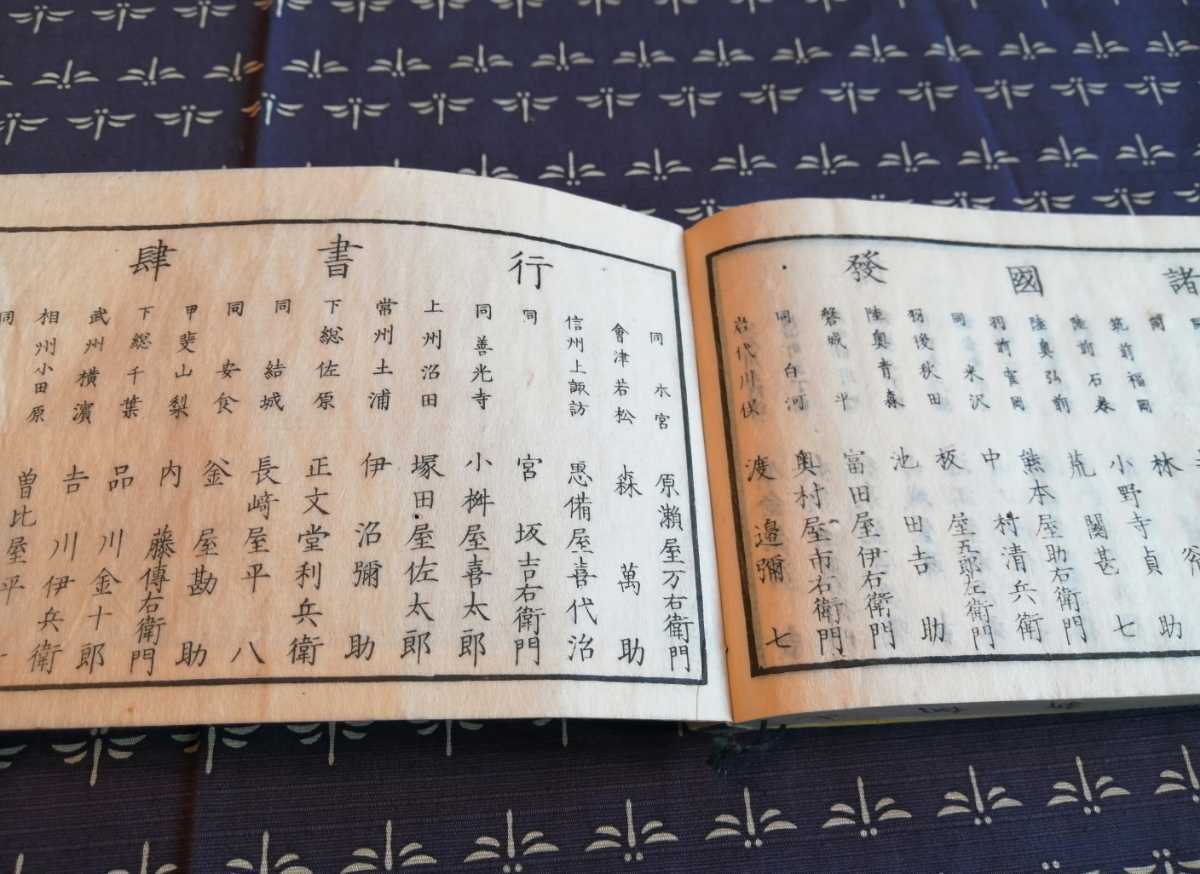 諸國發
筑前福岡 林 助
陸前石巻 小野寺貞七
陸奥弘前 關甚
羽前寒岡 熊本屋助右衛門
同米沢 中村清兵衛
羽後秋田 板屋五郎左衛門
陸奥青森 池田吉助
磐城平 富田屋伊右衛門
同白河 奥村屋市右衛門
岩代川俣 渡邉彌七
行書肆
同本宮 原瀬屋万右衛門
會津若松 森萬助
信州上諏訪 恵備屋喜代治
同 宮坂吉右衛門
同善光寺 小桝屋喜太郎
上州沼田 塚田屋佐太郎
常州土浦 伊沼彌助
下総佐原 正文堂利兵衛
同結城 長﨑屋平八
同安食 釜屋勘助
甲斐山梨 内藤傳右衛門
下総千葉 品川金十郎
武州横濱 吉川伊兵衛
相州小田原 曽比屋平
同